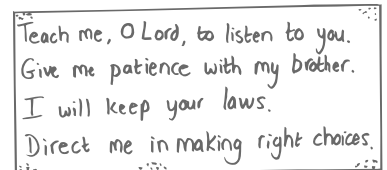 Teach me, O Lord, to listen to you.
Give me patience with my brother.
I will keep your laws.
Direct me in making right choices.